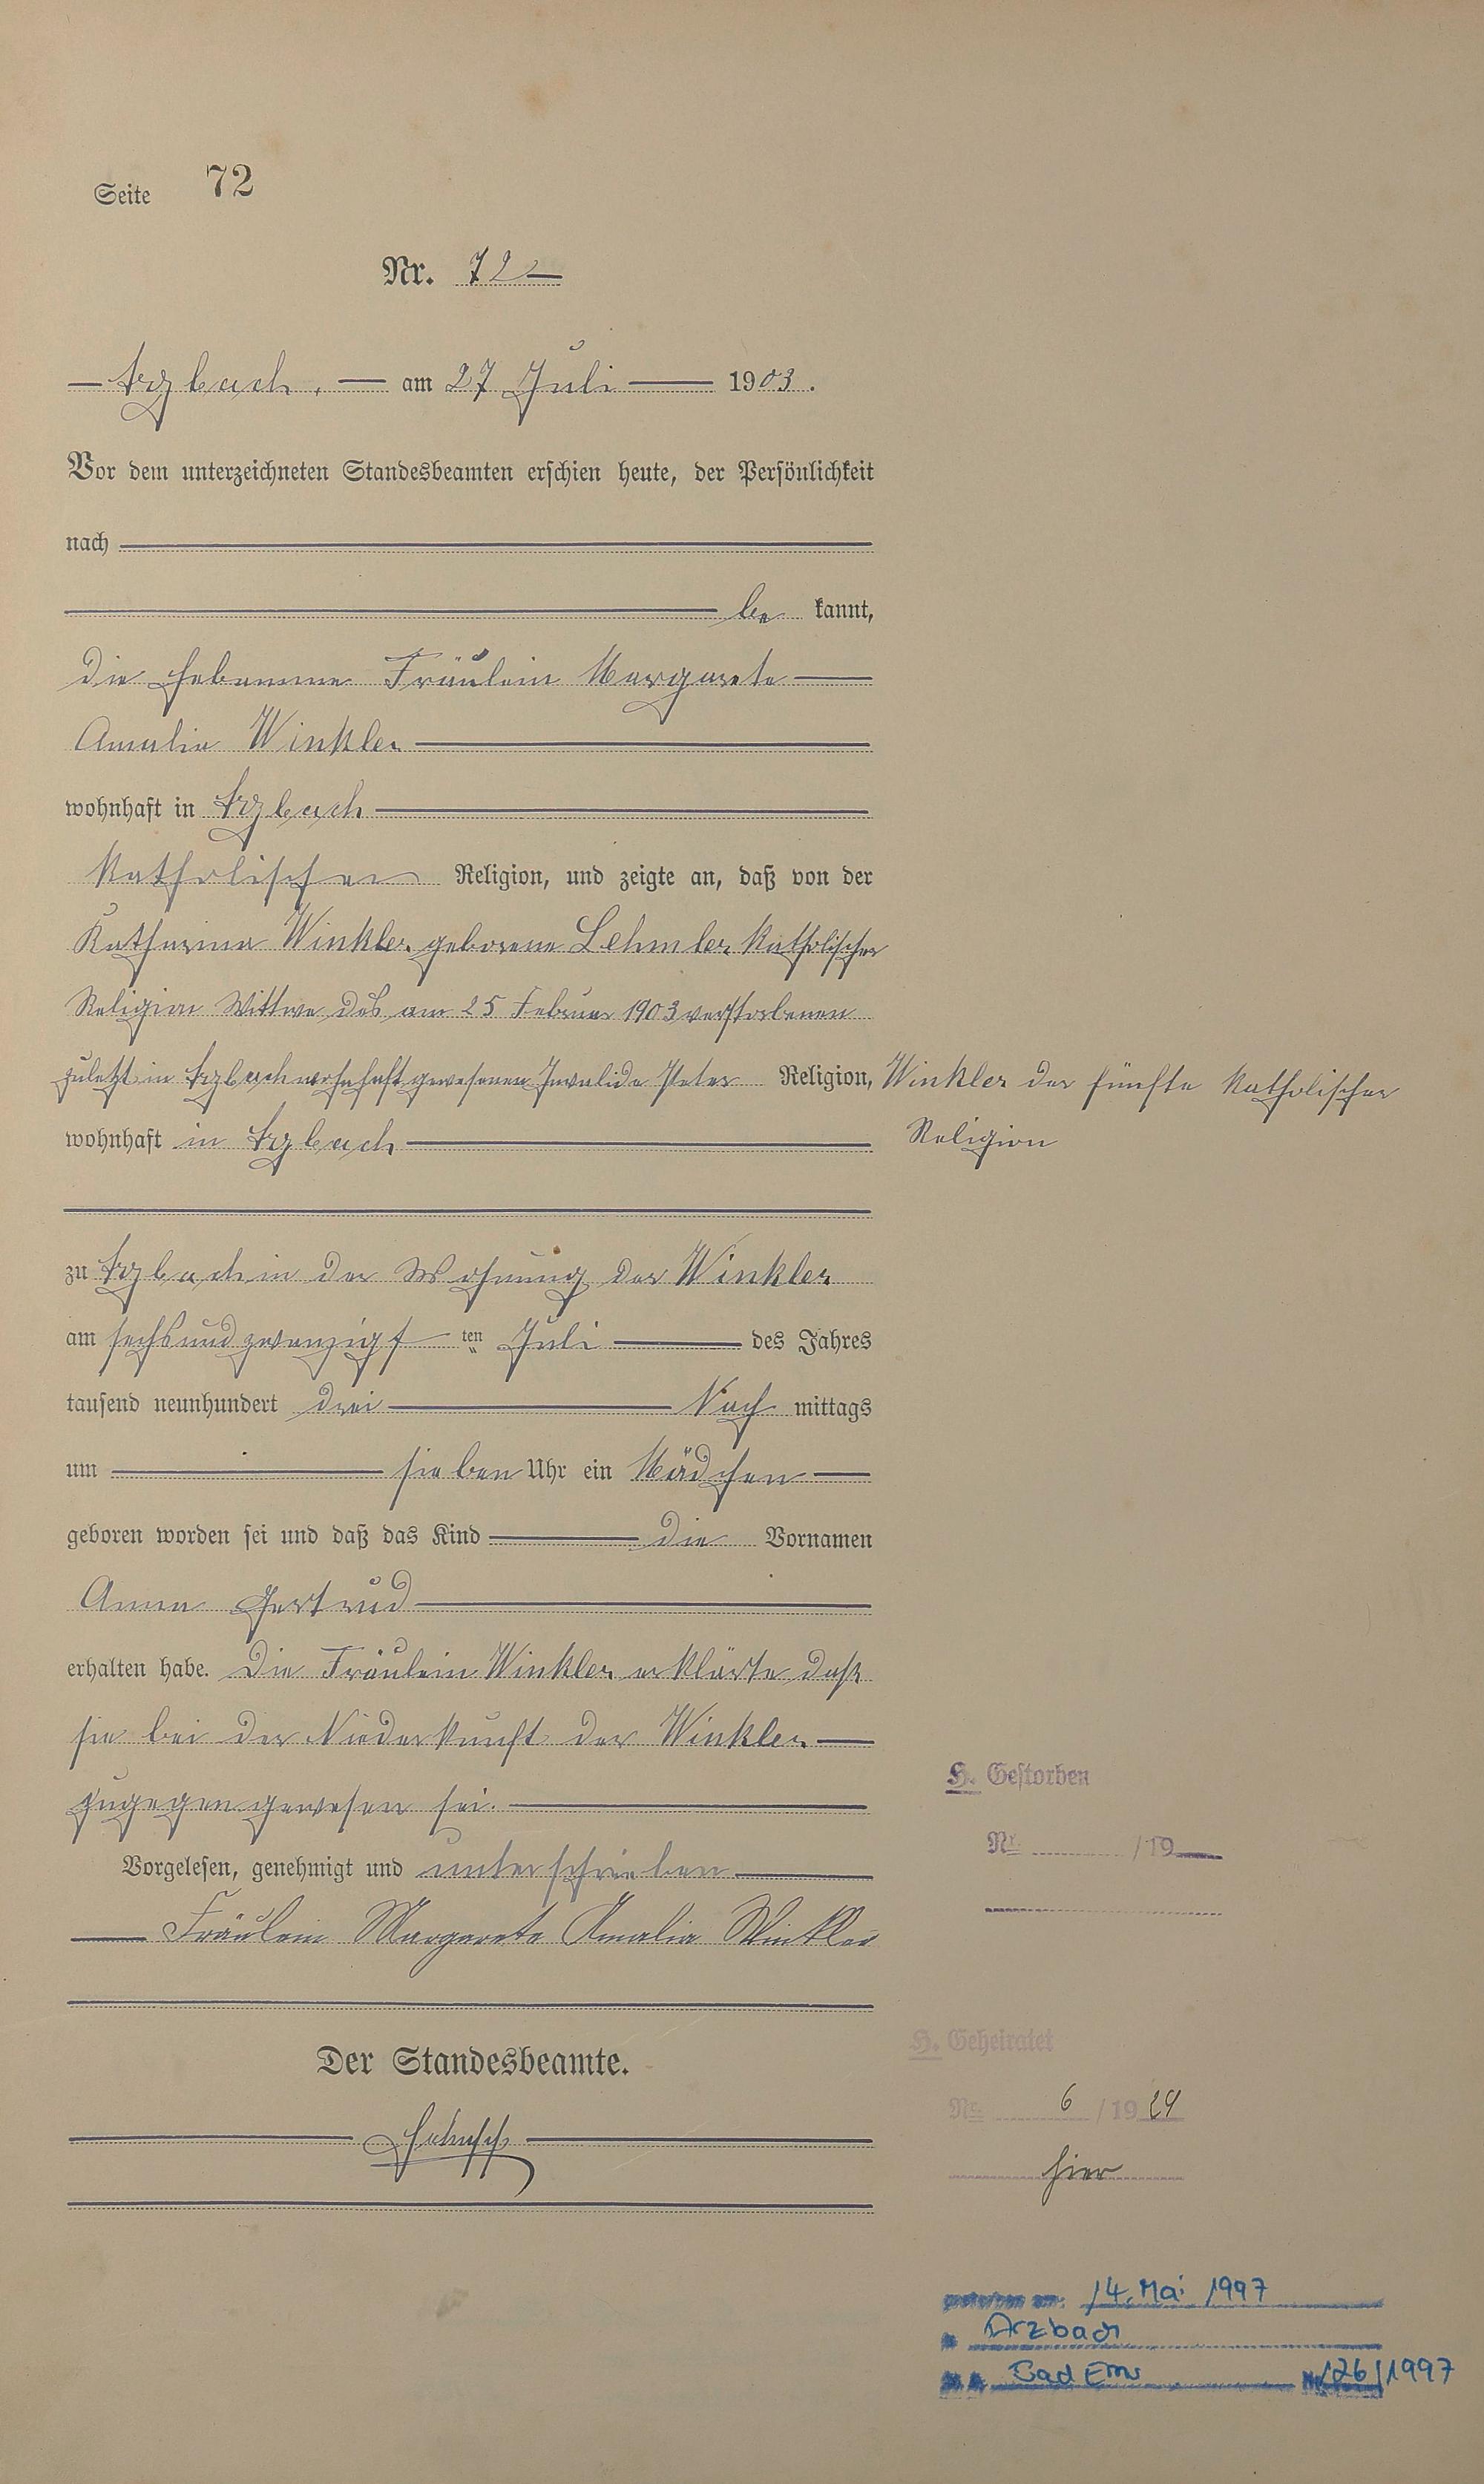 Seite 72
Nr. 72
Arzbach, am 27 Juli 1903.
Vor dem unterzeichneten Standesbeamten erschien heute, der Persönlichkeit
nach
be kannt,
die Hebamme Fräulein Margareta
Amalia Winkler
wohnhaft in Arzbach
katholischer Religion, und zeigte an, daß von der
Katharina Winkler geborene Lehmler katholischer
Religion Wittwe des am 25 Februar 1903 verstorbenen
zuletzt in Arzbach wohnhaft gewesenen Invalide Peter Religion, Winkler der fünfte katholischer
wohnhaft in Arzbach Religion
zu Arzbach in der Wohnung der Winkler
am sechsundzwanzigsten Juli des Jahres
tausend neunhundert drei Nach mittags
um sieben Uhr ein Mädchen
geboren worden sei und daß das Kind die Vornamen
Anna Gertrud
erhalten habe. Die Fräulein Winkler erklärte daß
sie bei der Niederkunft der Winkler
zugegen gewesen sei.
Vorgelesen, genehmigt und unterschrieben
Fräulein Margareta Amalia Winkler
Der Standesbeamte.
H. Gestorben
Nr. /19
H. Geheiratet
Nr. 6 /19 29
hier
gestorben am: 14. Mai 1997
Arzbach
Bad Ems Nr. 126/1997